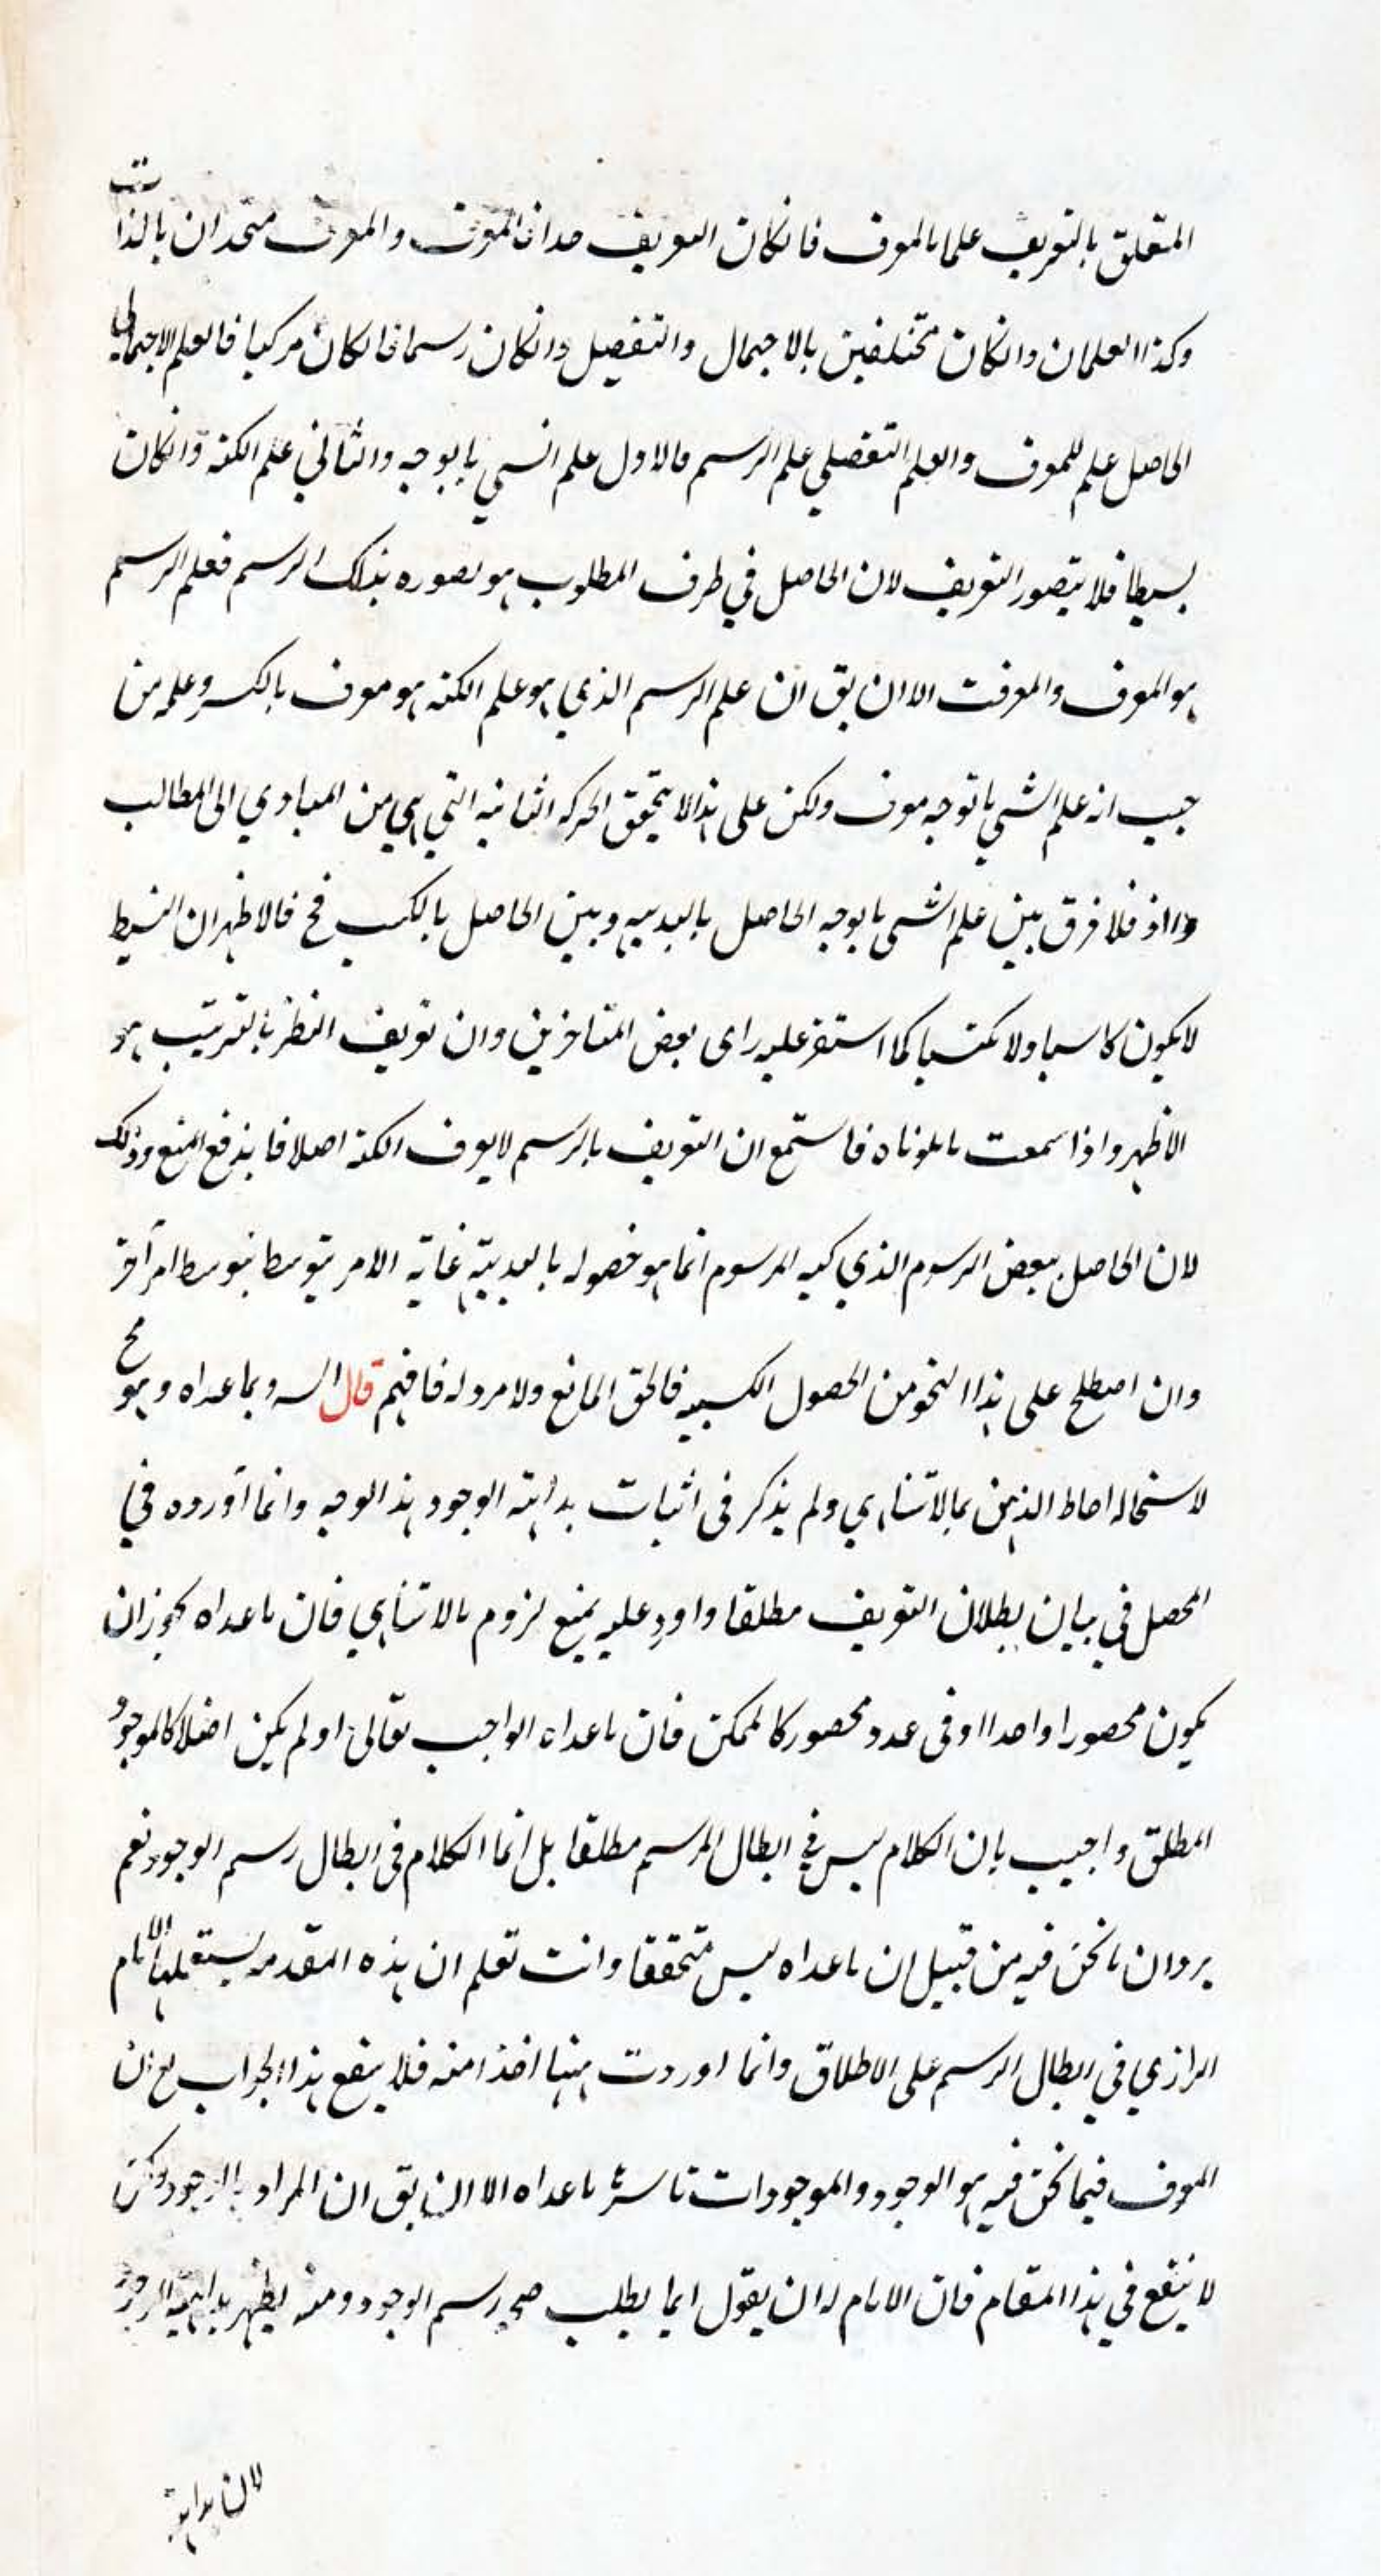 المتعلق بالتعريف علما بالمعرف فانكان التعريف حدا فالمعرف والمعرف متحدان بالذات
وكذا العلمان وانكان مختلفين بالاجمال والتفصيل وانكان رسما فانكان مركبا فالعلم الاجمالي
الحاصل علم للمعرف والعلم التفصيلي علم الرسم فالاول علم الشي بالوجه والثاني علم الكنه وانكان
بسيطا فلا يتصور التعريف لان الحاصل في طرف المطلوب هو تصوره بذلك الرسم فعلم الرسم
هو المعرف والمعرفت الا ان يق ان علم الرسم الذي هو علم الكنه هو معرف بالكسر وعلمه من
حيث انه علم الشي بالوجه معرف ولكن على هذا لا يتحقق الحركه الثانيه التي هي من المبادي الى المطالب
واذ فلا فرق بين علم الشي بالوجه الحاصل بالبديهه وبين الحاصل بالكسب فح فالاظهر ان البسيط
لا يكون كاسبا ولا مكتسبا كما استقر عليه راى بعض المتاخرين وان تعريف النظر بالترتيب هو
الاظهر واذا سمعت ما تلوناه فاستمع ان التعريف بالرسم لا يعرف الكنه اصلا فاندفع المنع وذلك
لان الحاصل ببعض الرسوم الذي كنه المرسوم انما هو حصوله بالبديهة غاية الامر يتوسط بتوسط امر آخر
وان اصطلح على هذا النحو من الحصول الكسبيه فالحق المانع ولا مرد له فافهم قال السـ وبما عداه وهو مح
لاستحاله احاطه الذهن بما لا تتناهي ولم يذكر فى اثبات بداهته الوجود هذا الوجه وانما أورده في
المحصل في بيان بطلان التعريف مطلقا واورد عليه بمنع لزوم ما لا تتناهي فان ما عداه يجوز ان
يكون محصورا واحدا او فى عدد محصور كالممكن فان ما عداه الواجب تعالى او لم يكن اصلا كالموجود
المطلق واجيب بان الكلام ليس في ابطال الرسم مطلقا بل انما الكلام فى ابطال رسم الوجود نعم
يرد ان ما نحن فيه من قبيل ان ما عداه ليس متحققا وانت تعلم ان هذه المقدمه يستعملها الامام
الرازي في ابطال الرسم على الاطلاق وانما اوردت ههنا اخذا منه فلا ينفع هذا الجواب مع ان
المعرف فيما نحن فيه هو الوجود والموجودات باسرها ما عداه الا ان يق ان المراد بالوجود ولكن
لا ينفع في هذا المقام فان الامام له ان يقول انما يطلب صحه رسم الوجود ومنه يظهر بداهته الوجود
لان بداهة